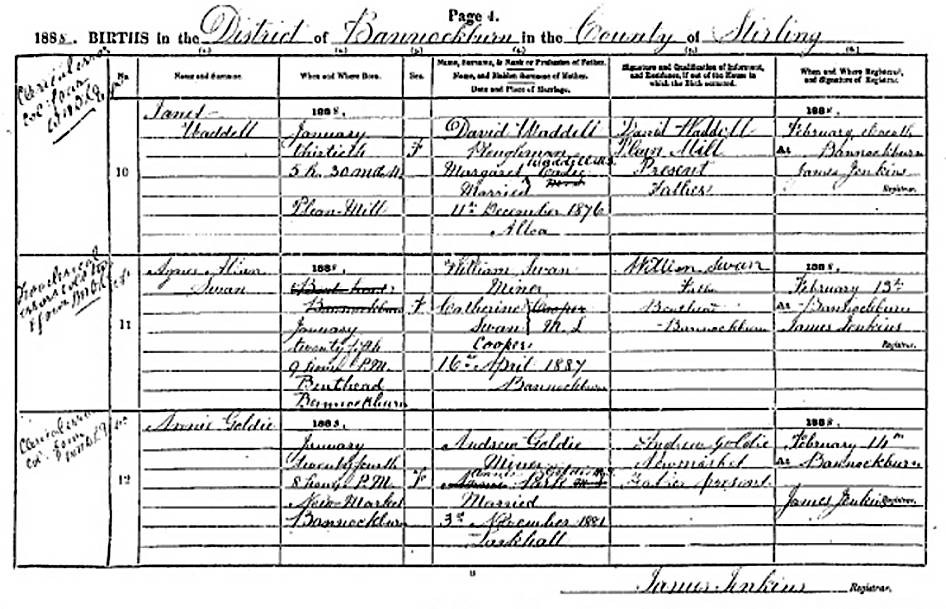 Page 4.
1888. BIRTHS in the District of Bannockburn in the County of Stirling
No.
Name and Surname.
When and Where Born.
Sex.
Name, Surname, & Rank or Profession of Father.
Name, and Maiden Surname of Mother.
Date and Place of Marriage.
Signature and Qualification of Informant,
and Residence, if out of the House in
which the Birth occurred.
When and Where Registered,
and Signature of Registrar.
10
Waddell
1888.
January
thirtieth
5 h. 30 m. M.
Plean Mill
F
David Waddell
Ploughman
Margaret
Married
11th December 1876
Alloa
David Waddell
Plean Mill
Present
Father
1888.
February
At Bannockburn
James Jenkins
Registrar.
11
Agnes
Swan
1888.
Bannockburn
January
twenty fifth
9 hours P.M.
Benthead
Bannockburn
F
William Swan
Miner
Catherine Cooper
Swan M.S.
Cooper
16th April 1887
Bannockburn
William Swan
Benthead
Bannockburn
1888.
February 13th
At Bannockburn
James Jenkins
Registrar.
12
Annie Goldie
1888.
January
twenty fourth
8 hours P.M.
New Market
Bannockburn
F
Andrew Goldie
Miner
Married
3rd November 1881
Larkhall
Andrew Goldie
Newmarket
Father present
1888.
February 14th
At Bannockburn
James Jenkins Registrar.
James Jenkins Registrar.